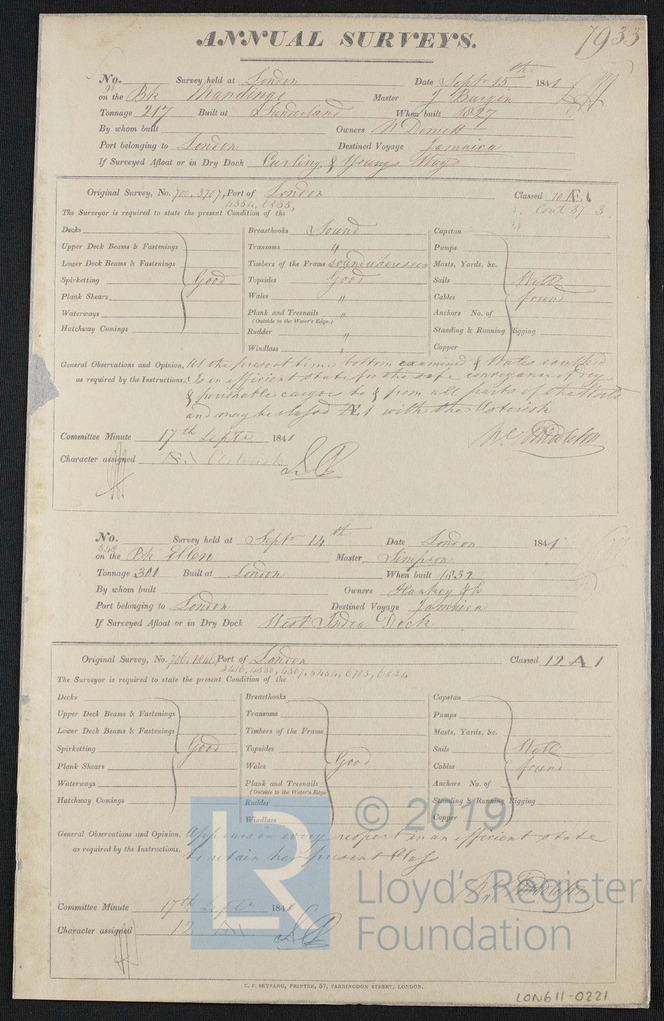 7933
ANNUAL SURVEYS.
No. Survey held at London Date Septr 15th 1841
on the Bk Mandingo Master J Burgin
Tonnage 217 Built at Sunderland When built 1827
By whom built Owners
Port belonging to London Destined Voyage Jamaica
If Surveyed Afloat or in Dry Dock Curling & Youngs Way
Original Survey, No. 700, 3707, Port of London Classed 10 Æ 1
4554, 6855, Cont 37 3
The Surveyor is required to state the present Condition of the
Decks
Upper Deck Beams & Fastenings
Lower Deck Beams & Fastenings
Spirketting Good
Plank Shears
Waterways
Hatchway Comings
Breasthooks Sound
Transoms "
Timbers of the Frame
Topsides Good
Wales "
Plank and Treenails "
(Outside to the Water's Edge.)
Rudder "
Windlass "
Capstan
Pumps
Masts, Yards, &c.
Sails Well
Cables found
Anchors No. of
Standing & Running Rigging
Copper
General Observations and Opinion, At the present time bottom examined & Wales caulked
as required by the Instructions, is in efficient state for the safe conveyance of Dry
& perishable cargoes to & from all parts of the World
and may be classed Æ 1 with the Asterisk
Committee Minute 17th Septr 1841
Character assigned Æ 1 Asterisk
No. Survey held at Septr 14th Date London 1841
on the Bk Ellen Master Simpson
Tonnage 301 Built at London When built 1832
By whom built Owners Hankey &
Port belonging to London Destined Voyage Jamaica
If Surveyed Afloat or in Dry Dock West India Dock
Original Survey, No. 706, 1846, Port of London Classed 12 A 1
The Surveyor is required to state the present Condition of the
Decks
Upper Deck Beams & Fastenings
Lower Deck Beams & Fastenings
Spirketting Good
Plank Shears
Waterways
Hatchway Comings
Breasthooks
Transoms
Timbers of the Frame
Topsides
Wales Good
Plank and Treenails
(Outside to the Water's Edge
Rudder
Windlass
Capstan
Pumps
Masts, Yards, &c.
Sails Well
Cables found
Anchors No. of
Standing & Running Rigging
Copper
General Observations and Opinion, Appears in every respect in an efficient state
as required by the Instructions. to retain her present Class
Committee Minute 17th Septr 1841
Character assigned 12 A1
C. F. SEYFANG, PRINTER, 57, FARRINGDON STREET, LONDON.
LON611-0221
LR
© 2019
Lloyd's Register
Foundation